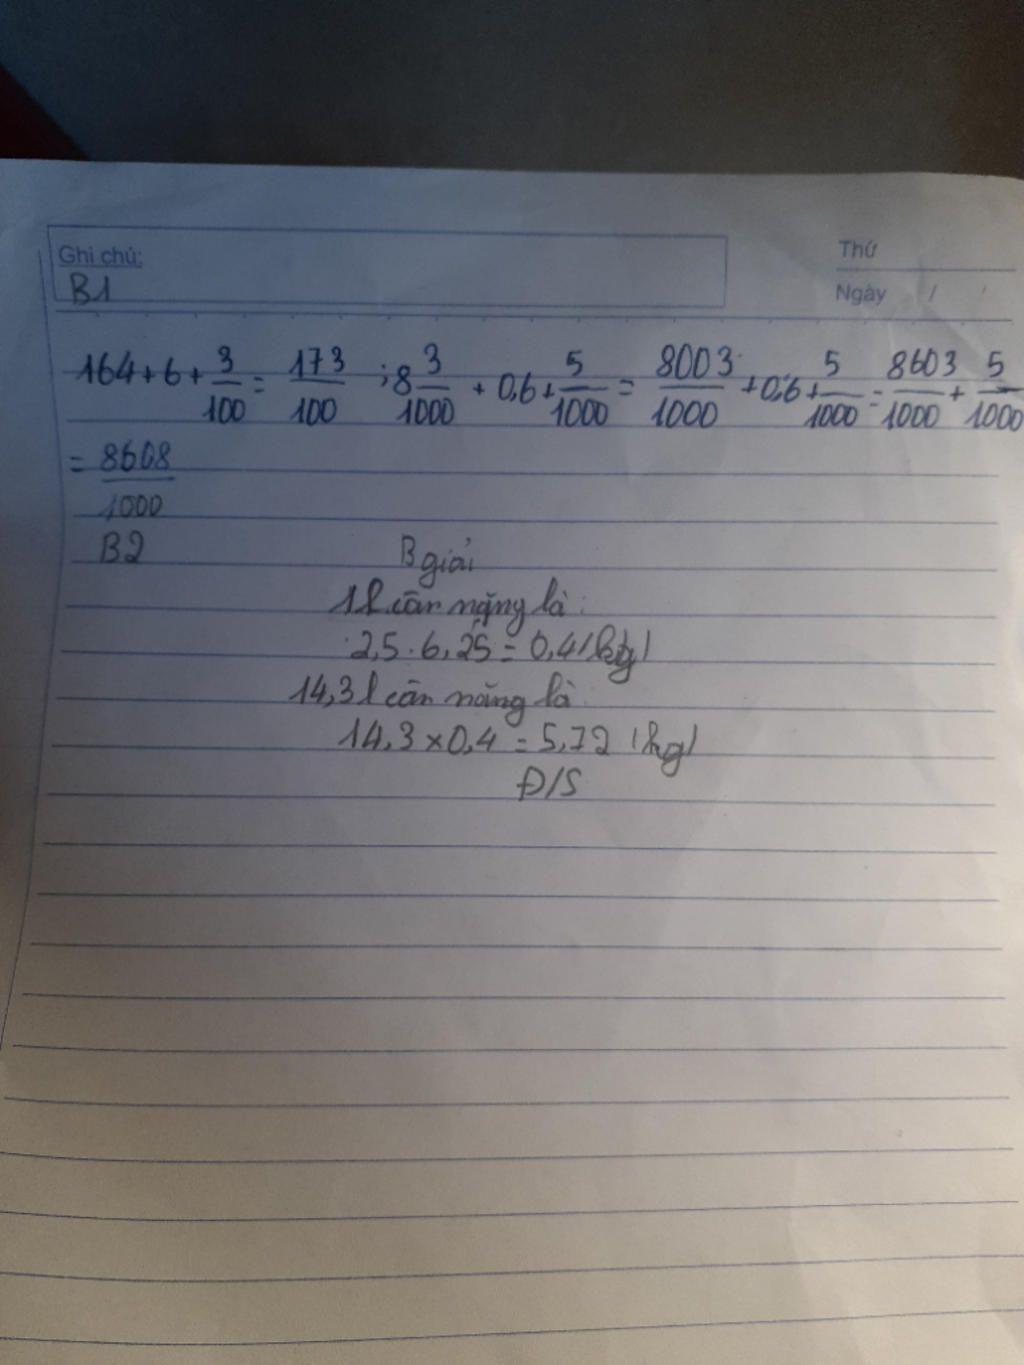 Ghi chú:
Thứ
B1
Ngày / /
164 + 6 + 3/100 = 173/100 ; 8 3/1000 + 0,6 + 5/1000 = 8003/1000 + 0,6 + 5/1000 = 8603/1000 + 5/1000
= 8608/1000
B2
B giải
1l cân nặng là:
2,5 : 6,25 = 0,4 (kg)
14,3l cân nặng là
14,3 × 0,4 = 5,72 (kg)
Đ/S